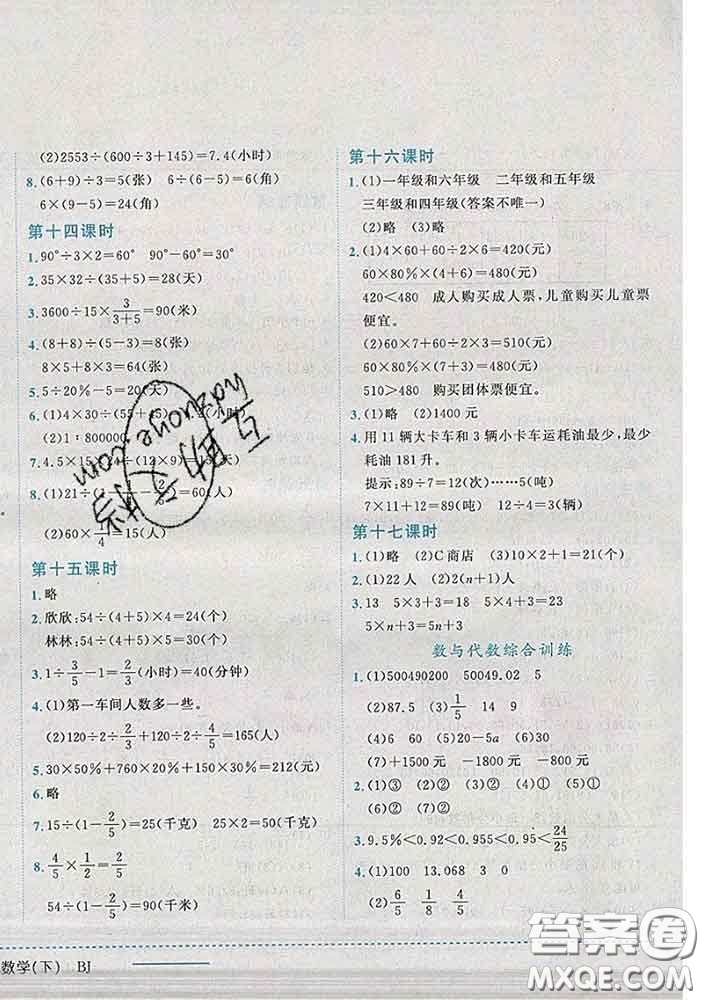 (2)2553÷(600÷3+145)=7.4(小时)
8.(6+9)÷3=5(张) 6÷(6−5)=6(角)
6×(9−5)=24(角)
第十四课时
1.90°÷3×2=60° 90°−60°=30°
2.35×32÷(35+5)=28(天)
3.3600÷15×3/(3+5)=90(米)
4.(8+8)÷(5−3)=8(张)
8×5+8×3=64(张)
5.2÷20%−5=5(天)
6.(1)4×30÷(55+45)
(小时)
(2)1∶800000
7.4.5×15÷
9)=15(天)
8.(1)21÷
=60(人)
(2)60×1/4=15(人)
第十五课时
1.略
2.欣欣:54÷(4+5)×4=24(个)
林林:54÷(4+5)×5=30(个)
3.1÷3/5−1=2/3(小时)=40(分钟)
4.(1)第一车间人数多一些。
(2)120÷2/3+120÷2/5=480(人)
5.30×50%+760×20%+150×30%=212(元)
6.略
7.15÷(1−2/5)=25(千克) 25×2=50(千克)
8.4/5×1/2=2/5
54÷(1−2/5)=90(千米)
第十六课时
1.(1)一年级和六年级 二年级和五年级
三年级和四年级(答案不唯一)
(2)略 (3)略
2.(1)4×60+60÷2×6=420(元)
60×80%×(4+6)=480(元)
420<480 成人购买成人票,儿童购买儿童票
便宜。
(2)60×7+60÷2×3=510(元)
60×80%×(7+3)=480(元)
510>480 购买团体票便宜。
3.(1)略 (2)1400元
4.用11辆大卡车和3辆小卡车运耗油最少,最少
耗油181升。
提示:89÷7=12(次)……5(吨)
7×11+12=89(吨) 12÷4=3(辆)
第十七课时
1.(1)略 (2)C商店 (3)10×2+1=21(元)
2.(1)22人 (2)2(n+1)人
3.13 5×3+3=18 5×4+3=23
5×n+3=5n+3
数与代数综合训练
1.(1)500490200 50049.02 5
(2)87.5 (3)1/5 14 9
(4)6 60 (5)20−5a (6)30
(7)+1500元 −1800元 −800元
2.(1)③ (2)② (3)② (4)① (5)①
(6)② (7)① (8)①
3.9.5%<0.92<0.955<0.95<24/25
4.(1)100 13.068 3 0
(2)6/5 1/8 4 5
数学(下) BJ
答案圈
MXQE.COM